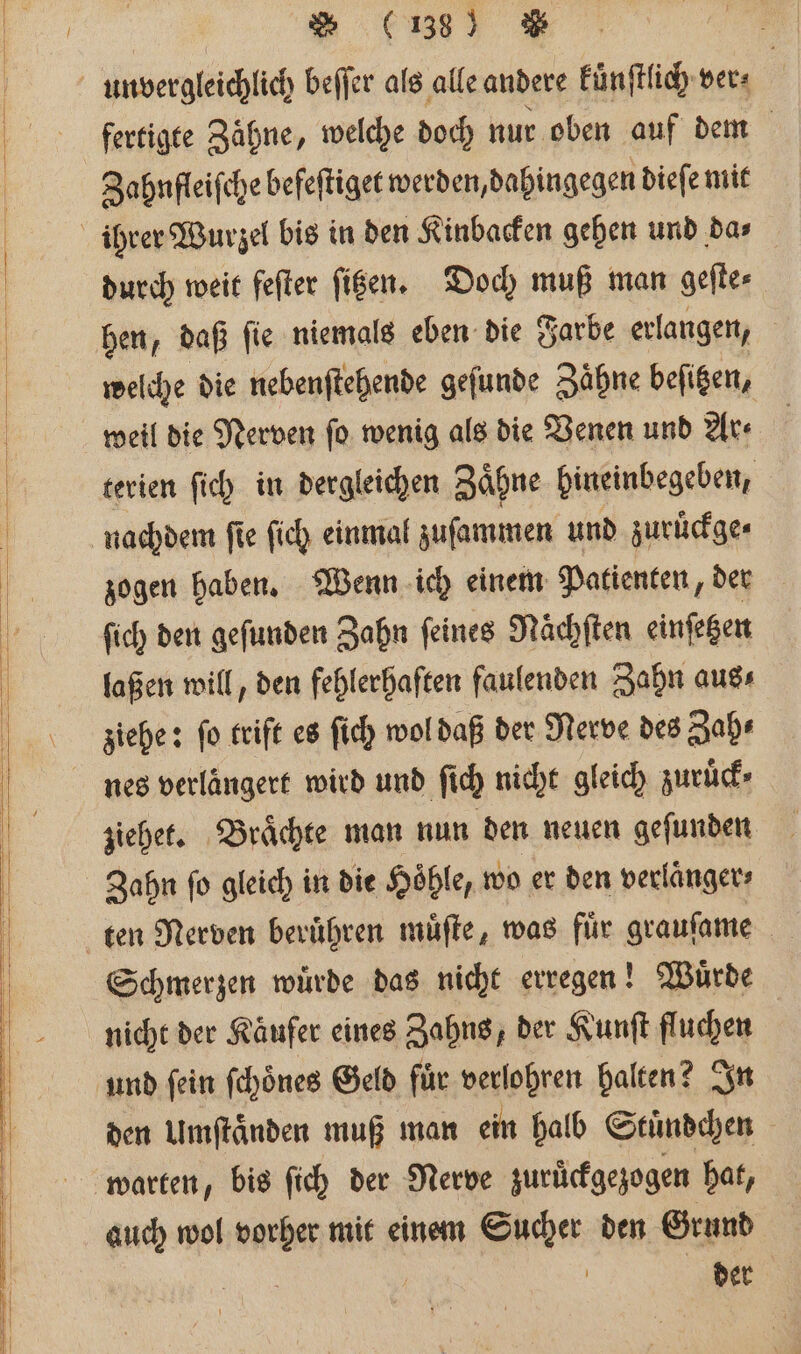 ❀ ( 138 ) ❀
unvergleichlich beſſer als alle andere kuͤnſtlich ver⸗
fertigte Zaͤhne, welche doch nur oben auf dem
Zahnfleiſche befeſtiget werden, dahingegen dieſe mit
ihrer Wurzel bis in den Kinbacken gehen und da⸗
durch weit feſter ſitzen. Doch muß man geſte⸗
hen, daß ſie niemals eben die Farbe erlangen,
welche die nebenſtehende geſunde Zaͤhne beſitzen,
weil die Nerven ſo wenig als die Venen und Ar⸗
terien ſich in dergleichen Zaͤhne hineinbegeben,
nachdem ſie ſich einmal zuſammen und zuruͤckge⸗
zogen haben. Wenn ich einem Patienten, der
ſich den geſunden Zahn ſeines Naͤchſten einſetzen
laßen will, den fehlerhaften faulenden Zahn aus⸗
ziehe: ſo trift es ſich wol daß der Nerve des Zah⸗
nes verlaͤngert wird und ſich nicht gleich zuruͤck⸗
ziehet. Braͤchte man nun den neuen geſunden
Zahn ſo gleich in die Hoͤhle, wo er den verlaͤnger⸗
ten Nerven beruͤhren muͤſte, was fuͤr grauſame
Schmerzen wuͤrde das nicht erregen! Wuͤrde
nicht der Kaͤufer eines Zahns, der Kunſt fluchen
und ſein ſchoͤnes Geld fuͤr verlohren halten? In
den Umſtaͤnden muß man ein halb Stuͤndchen
warten, bis ſich der Nerve zuruͤckgezogen hat,
auch wol vorher mit einem Sucher den Grund
der